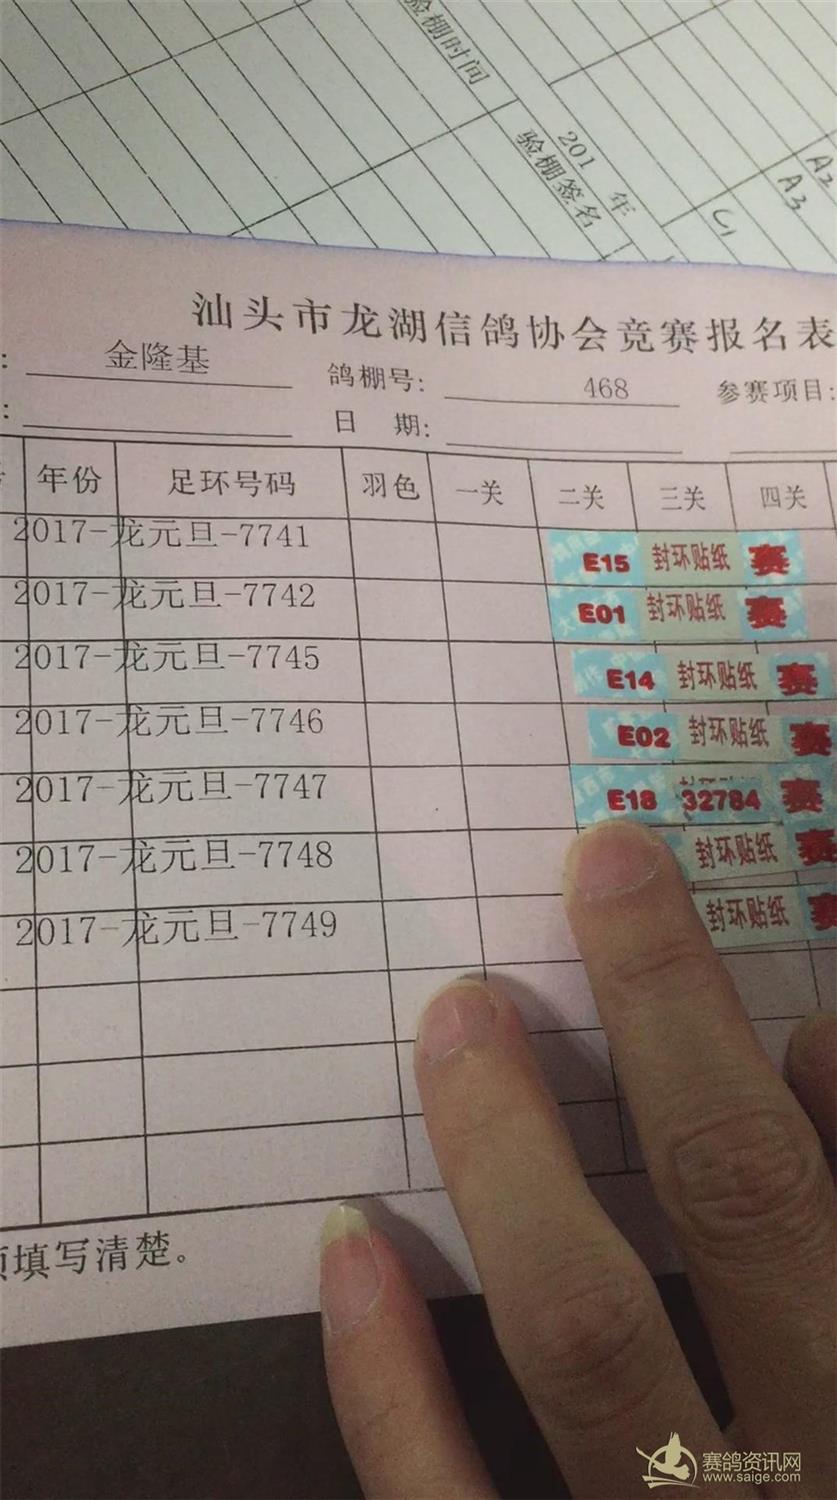 验棚时间
201 年
验棚签名
A2
A3
C1
汕头市龙湖信鸽协会竞赛报名表
: 金隆基 鸽棚号: 468 参赛项目:
: 日 期:
年份 足环号码 羽色 一关 二关 三关 四关
2017-龙元旦-7741 E15 封环贴纸 赛
2017-龙元旦-7742 E01 封环贴纸 赛
2017-龙元旦-7745 E14 封环贴纸 赛
2017-龙元旦-7746 E02 封环贴纸 赛
2017-龙元旦-7747 E18 32784 赛
2017-龙元旦-7748 封环贴纸 赛
2017-龙元旦-7749 封环贴纸 赛
填写清楚。
赛鸽资讯网
www.saige.com